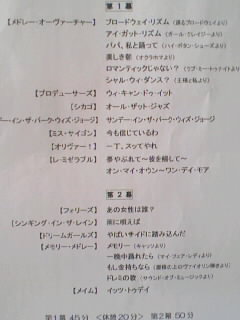 第１幕
【メドレー・オーヴァーチャー】 ブロードウェイ・リズム (踊るブロードウェイより)
アイ・ガット・リズム (ガール・クレイジーより)
パパ、私と踊って (ハイ・ボタン・シューズより)
美しき朝 (オクラホマより)
ロマンティックじゃない? (ラブ・ミー・トゥナイトより)
シャル・ウィ・ダンス? (王様と私より)
【プロデューサーズ】 ウィ・キャン・ドゥ・イット
【シカゴ】 オール・ザット・ジャズ
デー・イン・ザ・パーク・ウィズ・ジョージ】 サンデー・イン・ザ・パーク・ウィズ・ジョージ
【ミス・サイゴン】 今も信じているわ
【オリヴァー!】 一丁、スッてやれ
【レ・ミゼラブル】 夢やぶれて～彼を帰して～
オン・マイ・オウン～ワン・デイ・モア
第２幕
【フォリーズ】 あの女性は誰?
【シンギング・イン・ザ・レイン】 雨に唄えば
【ドリームガールズ】 やばいサイドに踏み込んだ
【メモリー・メドレー】 メモリー (キャッツより)
一晩中踊れたら (マイ・フェア・レディより)
もし金持ちなら (屋根の上のヴァイオリン弾きより)
ドレミの歌 (サウンド・オブ・ミュージックより)
【メイム】 イッツ・トゥデイ
第１幕 45分 <休憩20分> 第２幕 50分